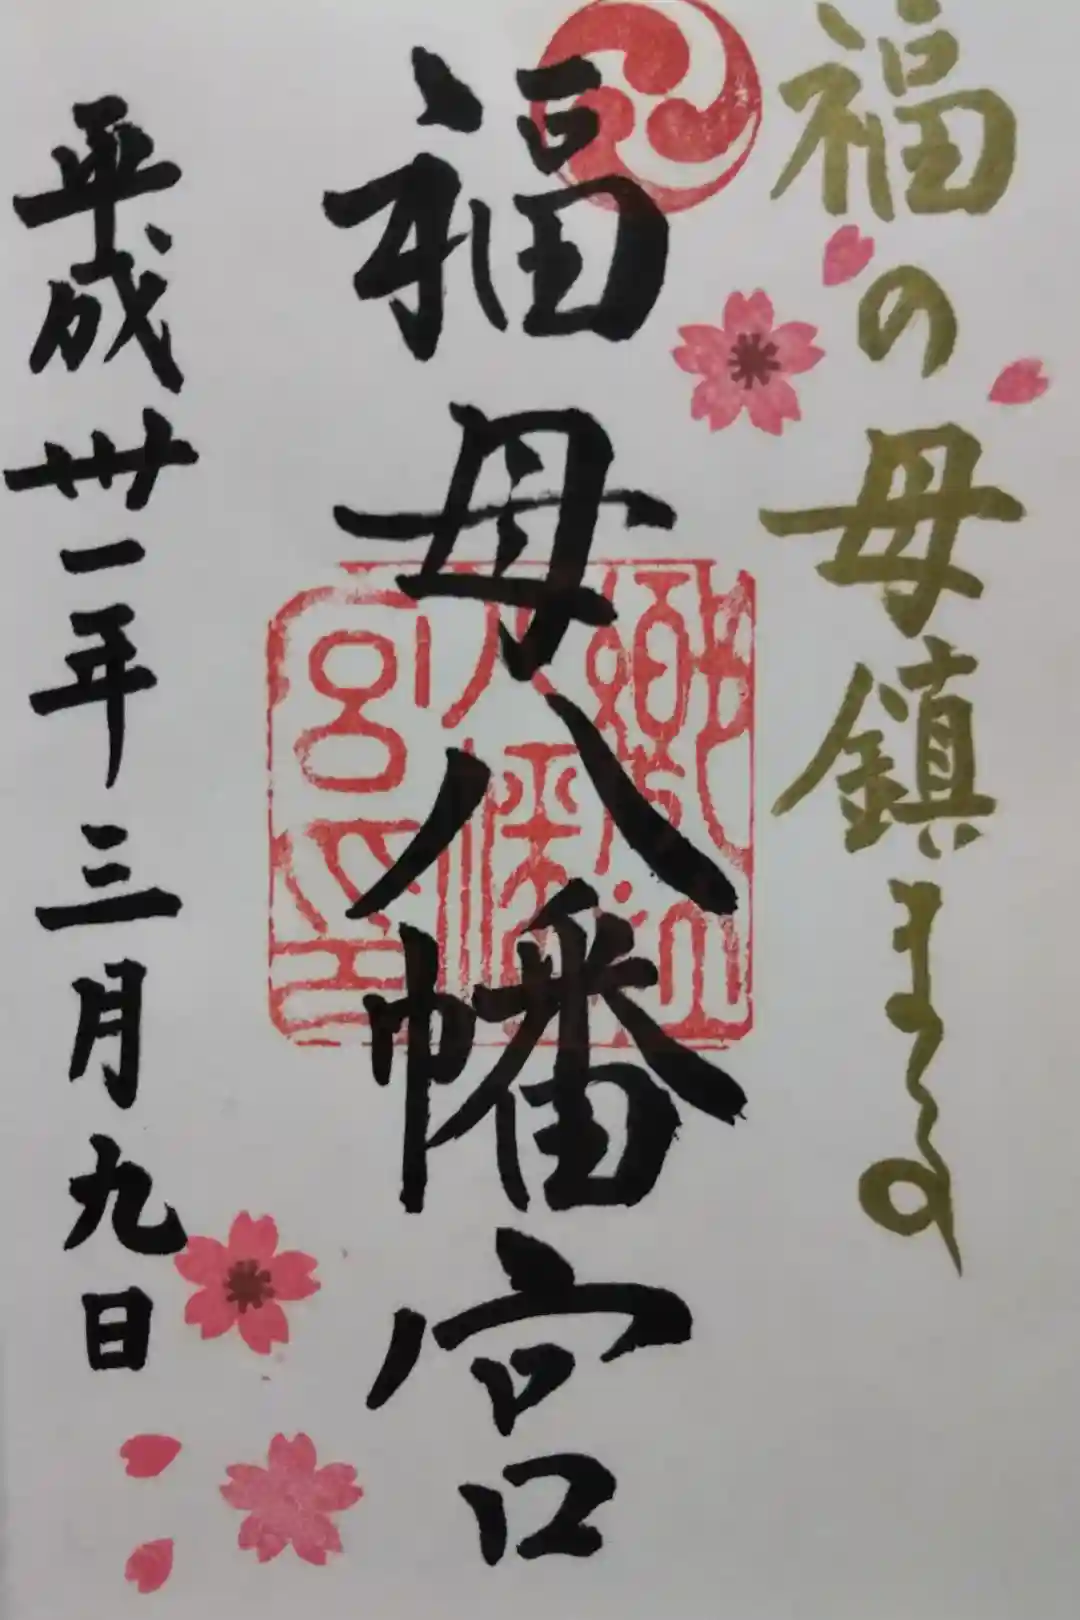 福の母鎮まる
福母八幡宮
平成卅一年三月九日